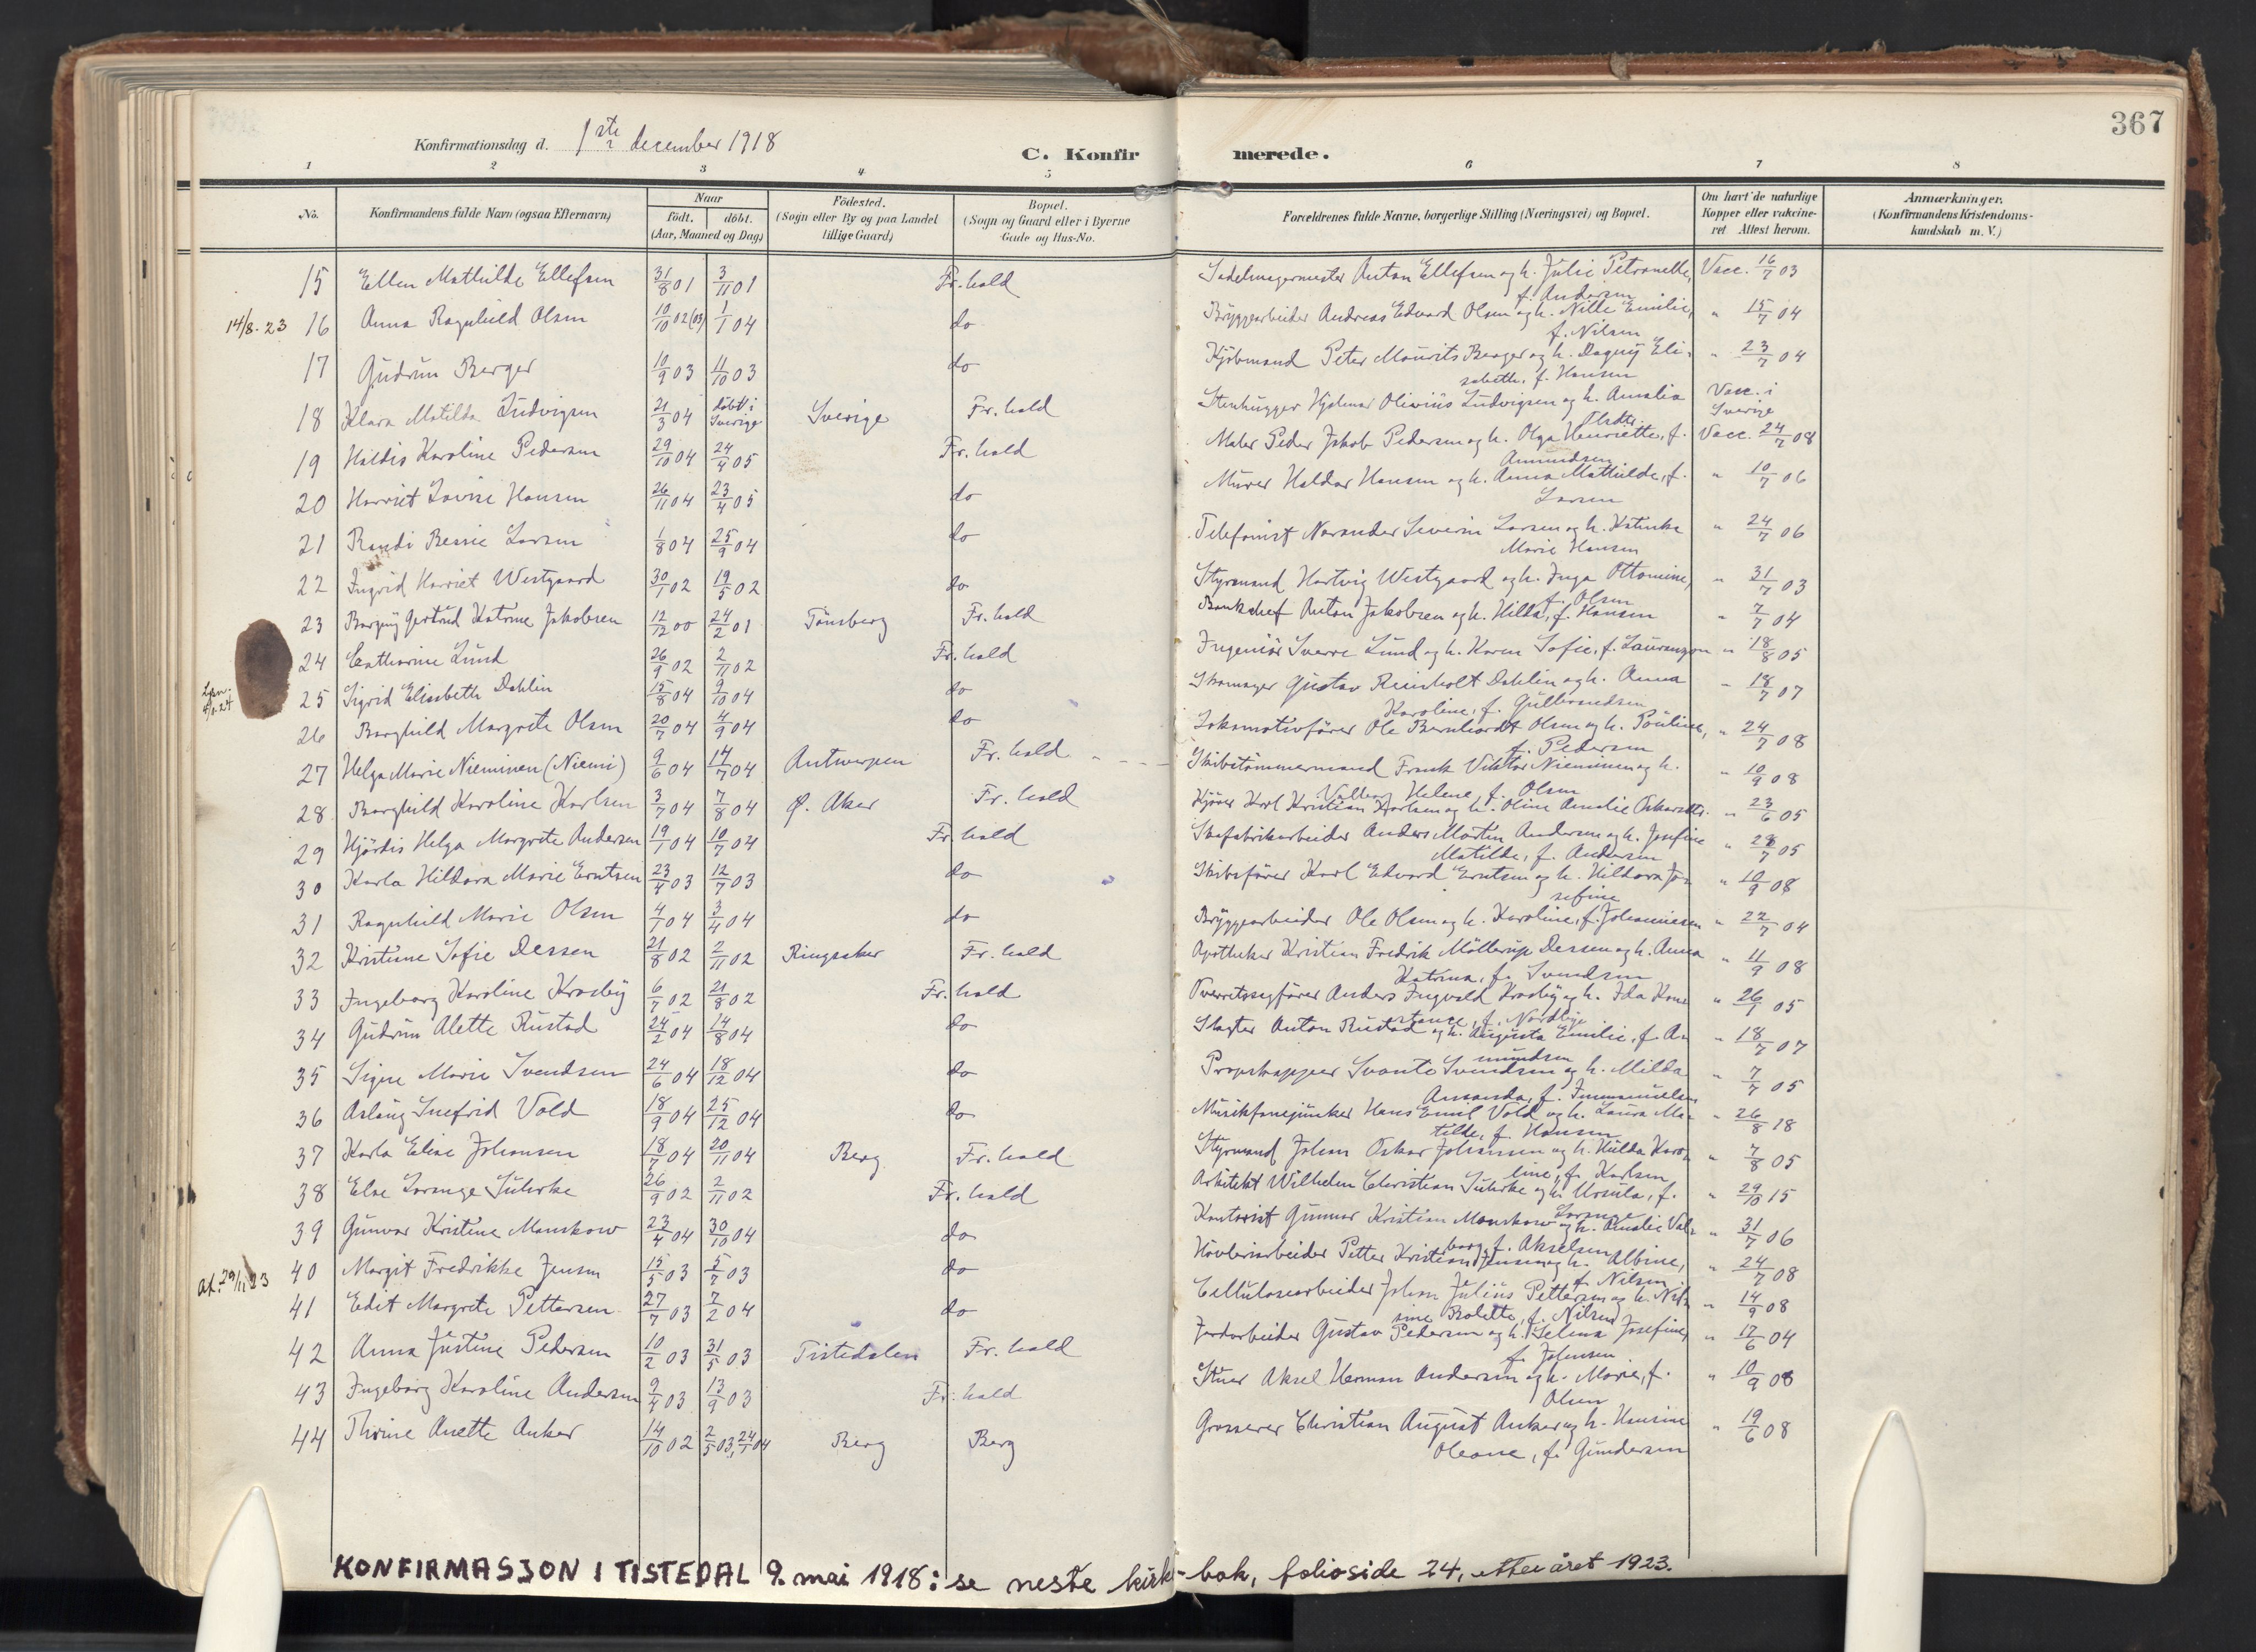 367
Konfirmationsdag d. 1ste december 1918
C. Konfirmerede.
1 2 3 4 5 6 7 8
No. Konfirmandens fulde Navn (ogsaa Efternavn) Naar födt. döbt. (Aar, Maaned og Dag) Födested. (Sogn eller By og paa Landet tillige Gaard) Bopæl. (Sogn og Gaard eller i Byerne Gade og Hus-No. Forældrenes fulde Navne, borgerlige Stilling (Næringsvei) og Bopæl. Om havt de naturlige Kopper eller vakcineret Attest herom. Anmærkninger. (Konfirmandens Kristendomskundskab m. V.)
15 Ellen Mathilde Ellefsen 31/8 01 3/11 01 Fr.hald Sadelmagermester Anton Ellefsen og h. Julie Petronelle, f. Andersen Vacc. 16/7 03
14/8.23 16 Anna Ragnhild Olsen 10/10 02(03) 1/1 04 do Bryggearbeider Andreas Edvard Olsen og h. Nille Emilie, f. Nilsen " 15/7 04
17 Gudrun Berger 10/9 03 11/10 03 do Kjöbmand Peter Mourits Berger og h. Dagny Elisabeth, f. Hansen " 23/7 04
18 Klara Matilda Ludvigsen 21/3 04 döbt i Sverige Sverige Fr.hald Stenhugger Hjalmar Olivius Ludvigsen og h. Amalia Olsdtr. Vacc. i Sverige
19 Haldis Karoline Pedersen 29/10 04 24/4 05 Fr.hald Maler Peder Jakob Pedersen og h. Olga Henriette, f. Amundsen Vacc. 24/7 08
20 Harriet Lovise Hansen 26/11 04 23/4 05 do Murer Haldor Hansen og h. Anna Mathilde, f. Larsen " 10/7 06
21 Randi Bessie Larsen 1/8 04 25/9 04 do Telefonist Narander Severin Larsen og h. Katinka Marie Hansen " 24/7 06
22 Ingrid Harriet Westgaard 30/1 02 19/5 02 do Styrmand Hartvig Westgaard og h. Inga Ottomine, f. Olsen " 31/7 03
23 Borgny Gertrud Katrine Jakobsen 12/12 00 24/2 01 Tönsberg Fr.hald Bankchef Anton Jakobsen og h. Hilda, f. Hansen " 7/7 04
24 Catharine Lund 26/9 02 2/11 02 Fr.hald Ingeniör Sverre Lund og h. Karen Sofie, f. Laurenzon " 18/8 05
25 Sigrid Elisabeth Dahlin 15/8 04 9/10 04 do Skomager Gustav Reinholt Dahlin og h. Anna Karoline, f. Gulbrandsen " 18/7 07
26 Borghild Margrete Olsen 20/7 04 4/9 04 do Lokomotivförer Ole Bernhardt Olsen og h. Pouline, f. Pedersen " 24/7 08
27 Helga Marie Nieminen (Niemi) 9/6 04 14/7 04 Antwerpen Fr.hald Skibstömmermand Frank Viktor Nieminen og h. Valborg Helene, f. Olsen " 10/9 08
28 Borghild Karoline Karlsen 3/7 04 7/8 04 Ø. Aker Fr.hald Kjörer Karl Kristian Karlsen og h. Oline Amalie Oskarsdtr. " 23/6 05
29 Hjördis Helga Margrete Andersen 19/1 04 10/7 04 Fr.hald Skofabrikarbeider Anders Martin Andersen og h. Josefine Matilde, f. Andersen " 28/7 05
30 Karla Hildora Marie Erntsen 23/4 03 12/7 03 do Skibsförer Karl Edvard Erntsen og h. Hildora Josefine " 10/9 08
31 Ragnhild Marie Olsen 4/1 04 3/4 04 do Bryggearbeider Ole Olsen og h. Karoline, f. Johannesen " 22/7 04
32 Kristine Sofie Dessen 21/8 02 2/11 02 Ringsaker Fr.hald Apotheker Kristian Fredrik Möllerup Dessen og h. Anna Katrina, f. Svendsen " 11/9 08
33 Ingeborg Karoline Krosby 6/7 02 21/8 02 Fr.hald Overretssagförer Anders Ingvald Krosby og h. Ida Konstance, f. Nordbye " 26/7 05
34 Gudrun Alette Rustad 24/2 04 14/8 04 do Slagter Anton Rustad og h. Augusta Emilie, f. Amundsen " 18/7 07
35 Signe Marie Svendsen 24/6 04 18/12 04 do Propskapper Svante Svendsen og h. Milda Amanda, f. Immanuelsen " 7/7 05
36 Aslaug Snefrid Vold 18/9 04 25/12 04 do Musikfanejunker Hans Emil Vold og h. Laura Matilde, f. Hansen " 26/8 18
37 Karla Elise Johansen 18/7 04 20/11 04 Berg Fr.hald Styrmand Johan Oskar Johansen og h. Hulda Karoline, f. Karlsen " 7/8 05
38 Else Lorange Suhrke 26/9 02 2/11 02 Fr.hald Arkitekt Wilhelm Christian Suhrke og h. Ursula, f. Lorange " 29/10 15
39 Gunvor Kristine Manskow 23/4 04 30/10 04 do Kontorist Gunnar Kristian Manskow og h. Amalie Valborg, f. Akselsen " 31/7 06
40 Margit Fredrikke Jensen 15/5 03 5/7 03 do Hövleriarbeider Petter Kristian Jensen og h. Albine, f. Nilsen " 24/7 08
At. 29/11 23 41 Edit Margrete Pettersen 27/7 03 7/2 04 do Cellulosearbeider Johan Julius Pettersen og h. Bolette, f. Nilsen " 14/9 08
42 Anna Justine Pedersen 10/2 03 31/5 03 Tistedalen Fr.hald Jordarbeider Gustav Pedersen og h. Selma Josefine, f. Johansen " 17/6 04
43 Ingeborg Karoline Andersen 9/4 03 13/9 03 Fr.hald Stuer Aksel Herman Andersen og h. Marie, f. Olsen " 10/9 08
44 Thrine Anette Anker 14/10 02 2/5 03, 24/1 04 Berg Berg Grosserer Christian August Anker og h. Hansine Oleane, f. Gundersen " 19/6 08
KONFIRMASJON I TISTEDAL 9. mai 1918: se neste kirkebok, folioside 24, etter året 1923.